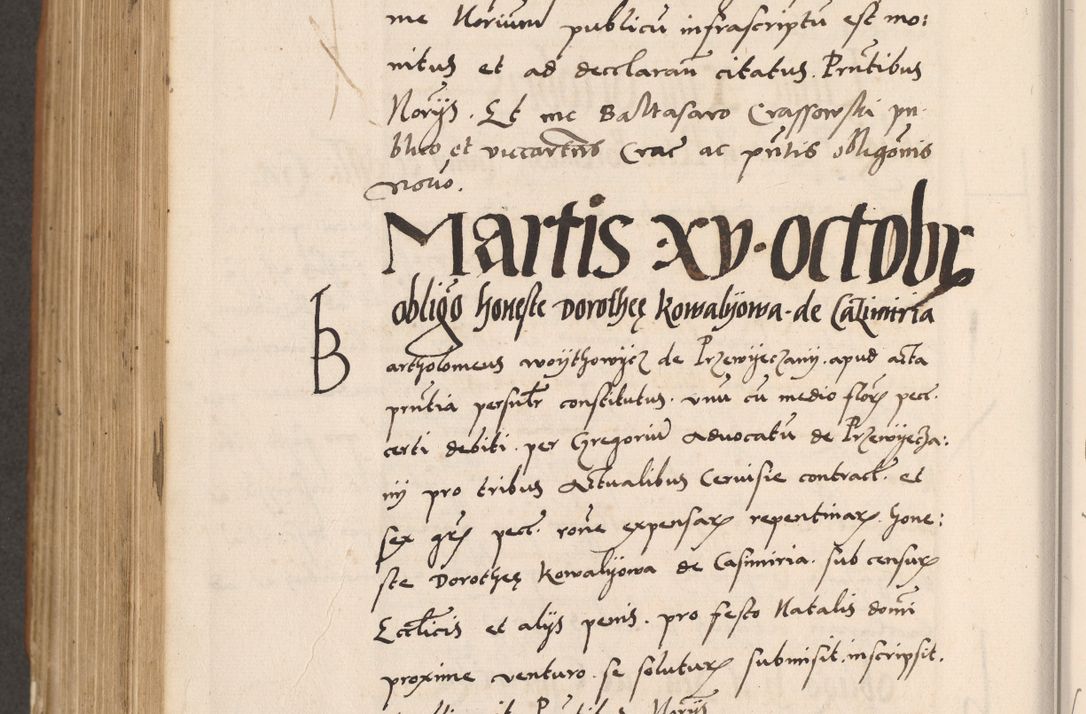 me Norium publicũ infrascriptũ est mo:
nitus et ad decclaranũ citatus. Prñtibus
Norijs. Et me Baltasaro Crassowski pu
blico et Crac ac pñtis obligõnis
Novõ.
Martis .xv. octobr
obligo honeste Dorothee Kowalijowa. de Cazimiria
Bartholomeus woijthowijcz de Przewijeczanij. apud acta
prñtia persnlr constitutus. vnũ cũ medio flor pecc.
certi debiti. per Gregoriũ Advocatũ de Przewijecza:
nij pro tribus Actualibus Cervisie contract. et
sex gr pecc. rõne expensar repentinar. hone:
ste Dorothee Kowalijowa de Casimiria. sub censur
Eccl̃icis et alijs penis. pro festo Natalis domĩ
proxime venturo. se solutur submisit. inscripsit.
Prñtibus Norijs